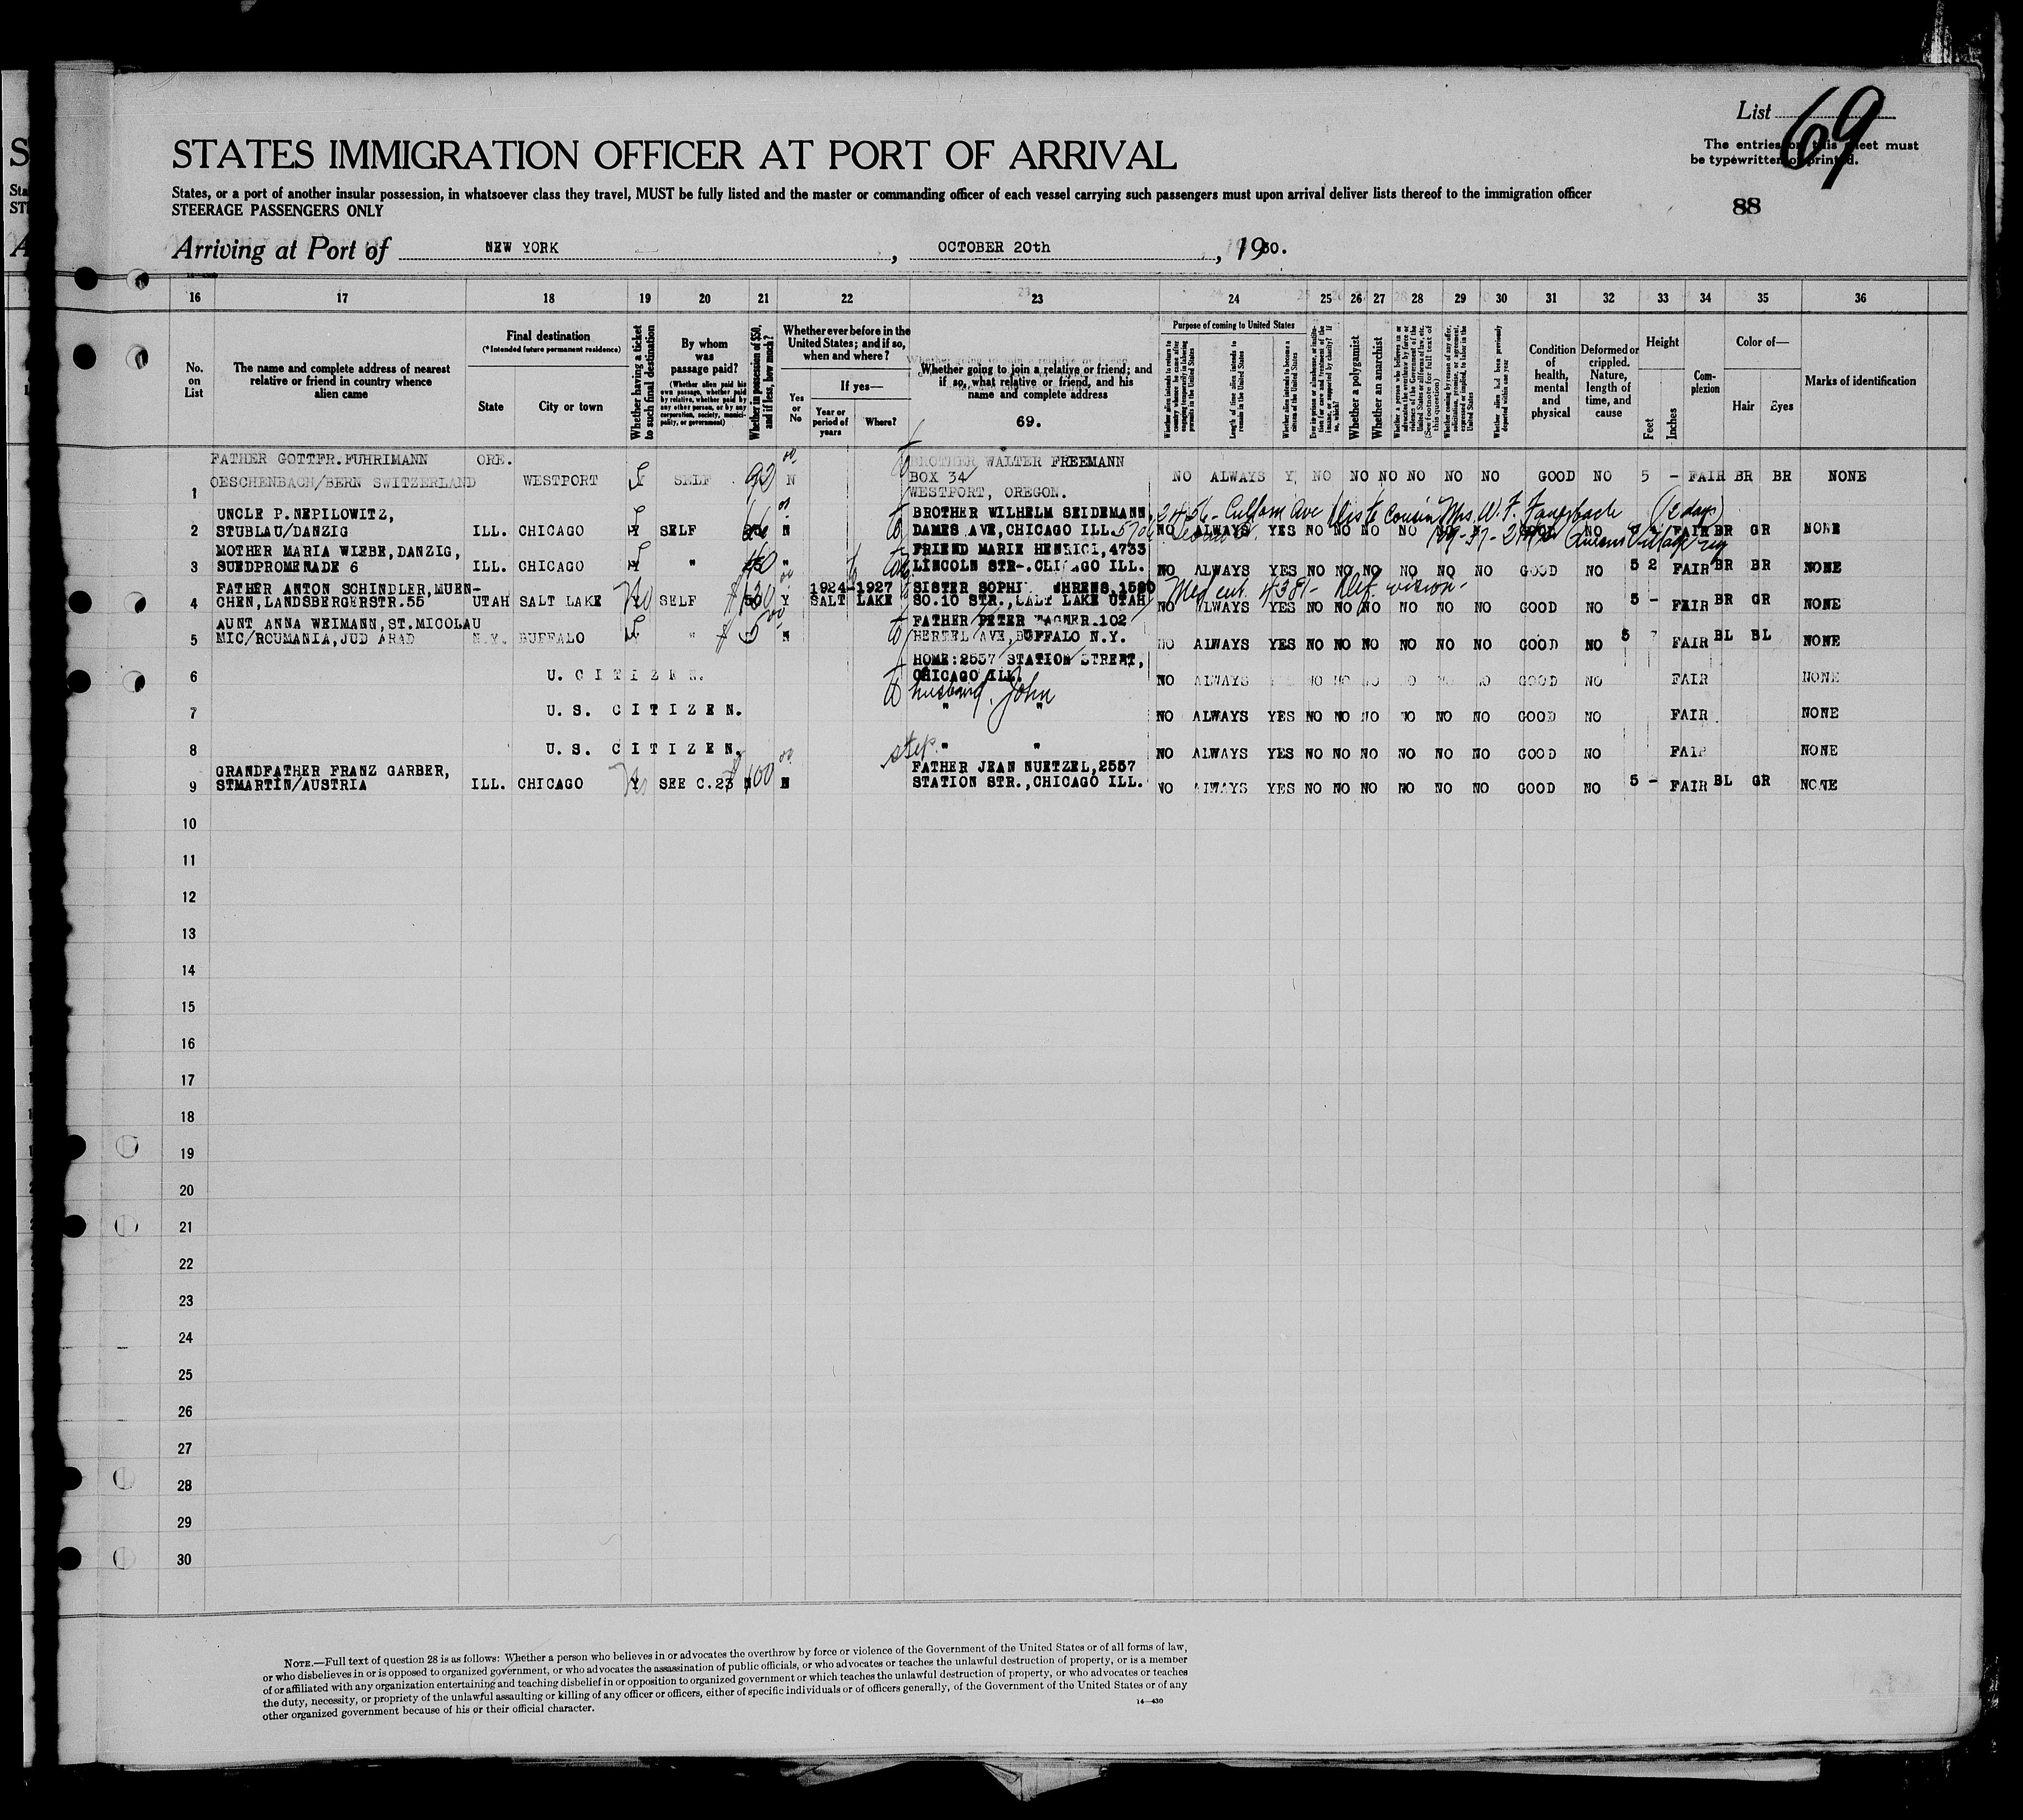 List 69
STATES IMMIGRATION OFFICER AT PORT OF ARRIVAL
The entries on this sheet must
be typewritten or printed.
States, or a port of another insular possession, in whatsoever class they travel, MUST be fully listed and the master or commanding officer of each vessel carrying such passengers must upon arrival deliver lists thereof to the immigration officer
STEERAGE PASSENGERS ONLY
88
Arriving at Port of NEW YORK, OCTOBER 20th, 1930.
16 17 18 19 20 21 22 23 24 25 26 27 28 29 30 31 32 33 34 35 36
No. on List
The name and complete address of nearest relative or friend in country whence alien came
Final destination
(*Intended future permanent residence)
State
City or town
Whether having a ticket to such final destination
By whom was passage paid?
(Whether alien paid his own passage, whether paid by relative, whether paid by any other person, or by any corporation, society, municipality, or government)
Whether in possession of $50, and if less, how much?
Whether ever before in the United States; and if so, when and where?
Yes or No
If yes—
Year or period of years
Where?
Whether going to join a relative or friend; and if so, what relative or friend, and his name and complete address
69.
Purpose of coming to United States
Whether alien intends to return to country whence he came after engaging temporarily in laboring pursuits in the United States
Length of time alien intends to remain in the United States
Whether alien intends to become a citizen of the United States
Whether a polygamist
Whether an anarchist
Whether alien had been previously deported within one year
Condition of health, mental and physical
Deformed or crippled. Nature, length of time, and cause
Height
Feet
Inches
Complexion
Color of—
Hair
Eyes
Marks of identification
FATHER GOTTFR.FUHRIMANN ORE. BROTHER WALTER FREEMANN
1 OESCHENBACH/BERN SWITZERLAND WESTPORT SELF 92 N BOX 34 NO ALWAYS Y NO NO NO NO NO NO GOOD NO 5 - FAIR BR BR NONE
WESTPORT, OREGON.
UNCLE P.NEPILOWITZ, BROTHER WILHELM SEIDEMANN,
2 STUBLAU/DANZIG ILL. CHICAGO Y SELF N DAMES AVE,CHICAGO ILL. NO ALWAYS YES NO NO NO NO NO NO GOOD NO FAIR BR GR NONE
MOTHER MARIA WIEBE,DANZIG, FRIEND MARIE HENRICI,4733
3 SUEDPROMENADE 6 ILL. CHICAGO Y " 40 " LINCOLN STR-.CLICAGO ILL. NO ALWAYS YES NO NO NO NO NO NO GOOD NO 5 2 FAIR BR BR NONE
FATHER ANTON SCHINDLER,MUEN- 1924-1927 SISTER SOPHI EHRENS,1580
Med cert.
4 CHEN,LANDSBERGERSTR.55 UTAH SALT LAKE No SELF Y SALT LAKE SO.10 STR.,SALT LAKE UTAH NO ALWAYS YES NO NO NO NO NO NO GOOD NO 5 - FAIR BR GR NONE
AUNT ANNA WEIMANN,ST.MICOLAU FATHER PETER WAGNER.102
5 MIC/ROUMANIA,JUD ARAD N.Y. BUFFALO " $ 5 N HERTEL AVE,BUFFALO N.Y. NO ALWAYS YES NO NO NO NO NO NO GOOD NO 5 7 FAIR BL BL NONE
HOME:2557 STATION STREET,
6 U. CITIZEN. CHICAGO ILL. NO ALWAYS NO NO NO NO NO NO GOOD NO FAIR NONE
to husband, John
7 U. S. CITIZEN. " " NO ALWAYS YES NO NO NO NO NO NO GOOD NO FAIR NONE
8 U. S. CITIZEN. step " " NO ALWAYS YES NO NO NO NO NO NO GOOD NO FAIR NONE
GRANDFATHER FRANZ GARBER, FATHER JEAN NUETZEL,2557
9 STMARTIN/AUSTRIA ILL. CHICAGO Y SEE C.23 100 N STATION STR.,CHICAGO ILL. NO ALWAYS YES NO NO NO NO NO NO GOOD NO 5 - FAIR BL GR NONE
10
11
12
13
14
15
16
17
18
19
20
21
22
23
24
25
26
27
28
29
30
NOTE.—Full text of question 28 is as follows: Whether a person who believes in or advocates the overthrow by force or violence of the Government of the United States or of all forms of law,
or who disbelieves in or is opposed to organized government, or who advocates the assassination of public officials, or who advocates or teaches the unlawful destruction of property, or is a member
of or affiliated with any organization entertaining and teaching disbelief in or opposition to organized government or which teaches the unlawful destruction of property, or who advocates or teaches
the duty, necessity, or propriety of the unlawful assaulting or killing of any officer or officers, either of specific individuals or of officers generally, of the Government of the United States or of any
other organized government because of his or their official character.
14—430